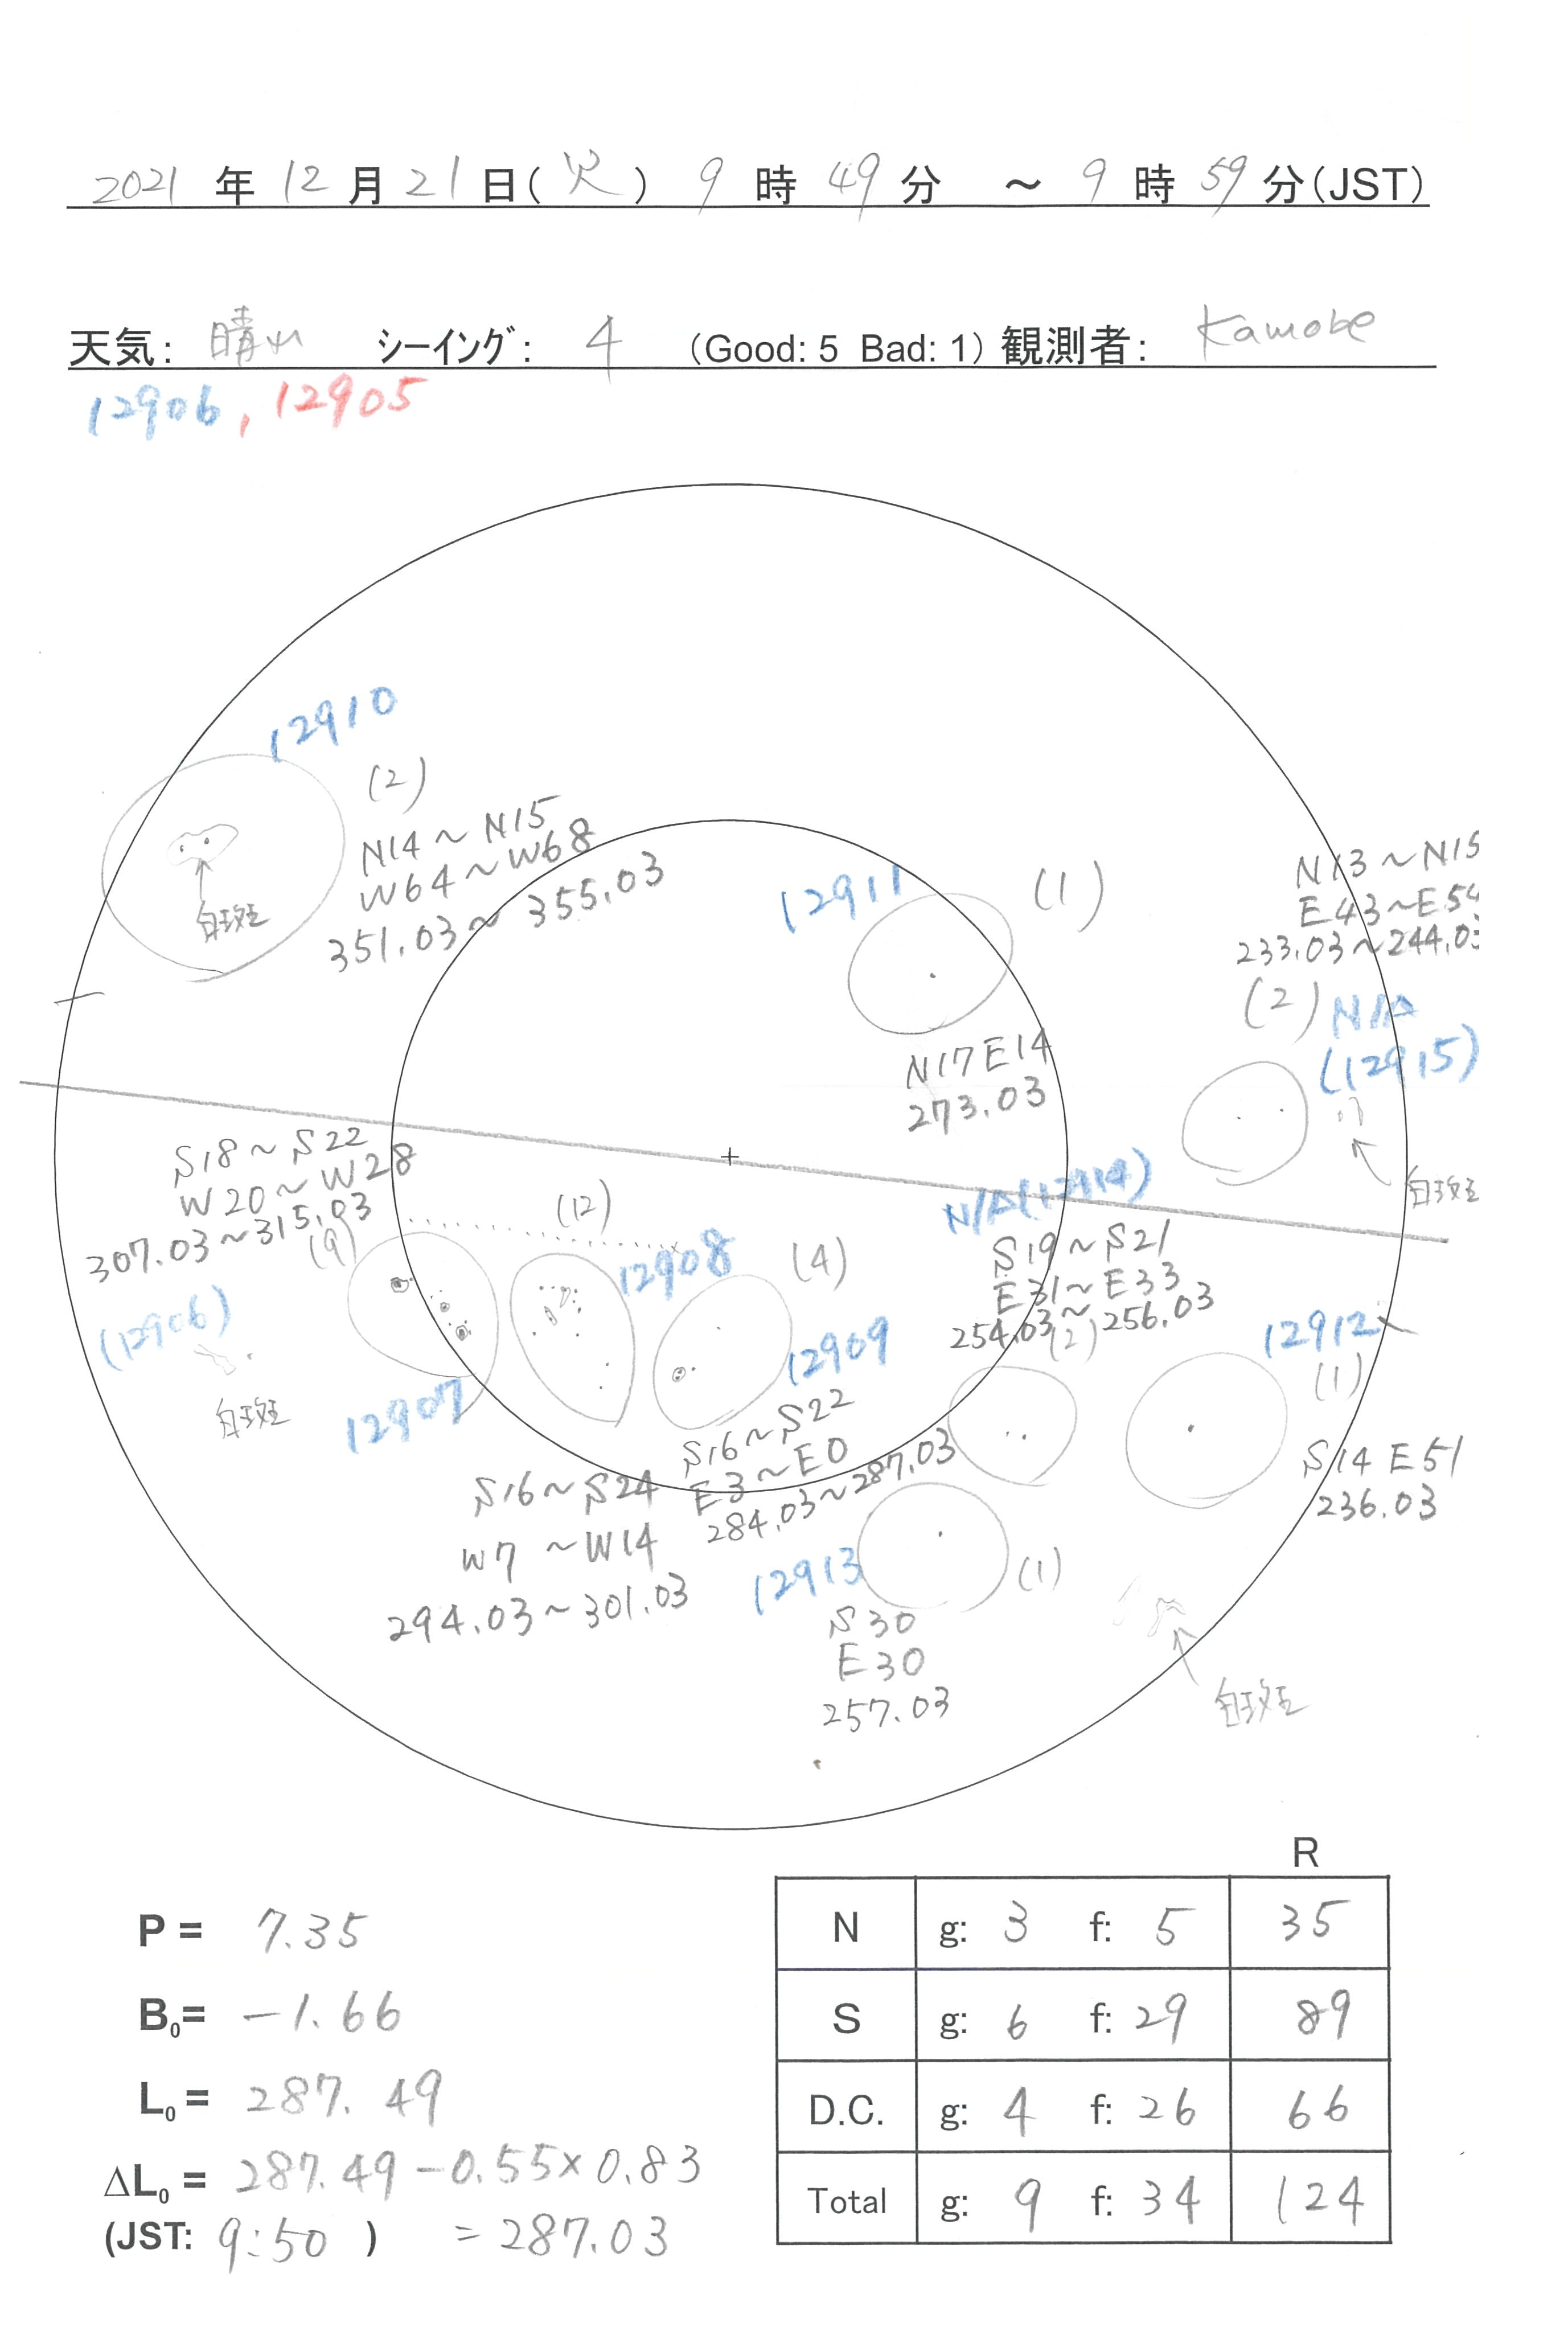 2021 年 12 月 21 日(火) 9 時 49 分 ～ 9 時 59 分(JST)
天気: 晴れ シーイング: 4 (Good: 5 Bad: 1) 観測者: Kamobe
12906, 12905
12910
(2)
N14～N15
W64～W68
351.03～355.03
白斑
12911
(1)
N17E14
273.03
N13～N15
E43～E54
233.03～244.03
(2) N/A
(12915)
白斑
S18～S22
W20～W28
307.03～315.03
(9)
(12906)
白斑
12907
(12)
12908
S16～S24
W7～W14
294.03～301.03
(4)
12909
S16～S22
E3～E0
284.03～287.03
N/A(12914)
S19～S21
E31～E33
254.03～256.03
(2)
12912
(1)
S14 E51
236.03
12913
(1)
S30
E30
257.03
白斑
P = 7.35
B0= -1.66
L0= 287.49
ΔL0= 287.49-0.55×0.83
(JST: 9:50) =287.03
R
N g: 3 f: 5 35
S g: 6 f: 29 89
D.C. g: 4 f: 26 66
Total g: 9 f: 34 124